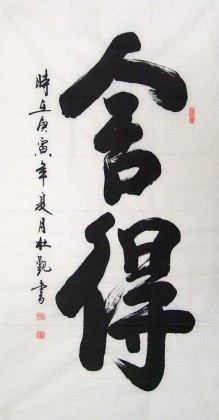 舍得
時在庚寅年夏月杜觀書